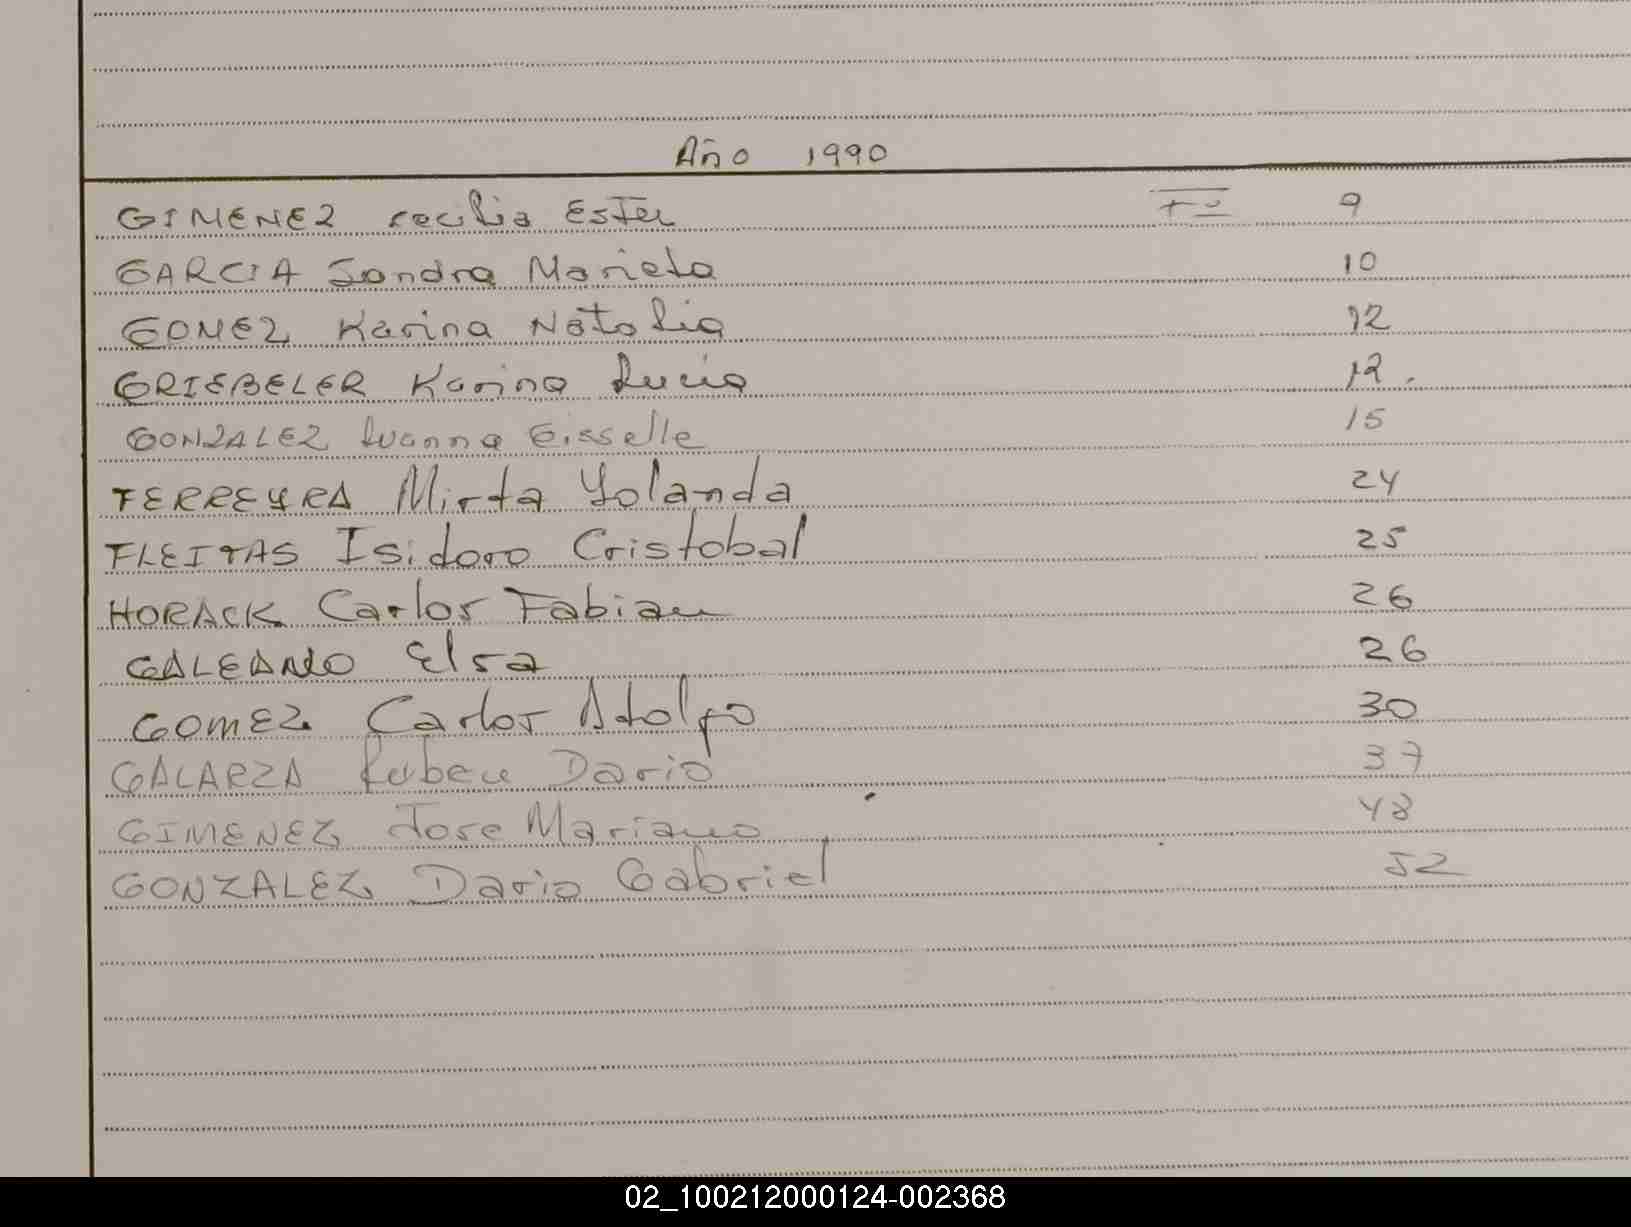 Año 1990
GIMENEZ Cecilia Ester Fº 9
GARCIA Sandra Mariela 10
GOMEZ Karina Natalia 12
GRIEBELER Karina Lucia 12.
GONZALEZ Luanna Gisselle 15
FERREYRA Mirta Yolanda 24
FLEITAS Isidoro Cristobal 25
HORACK Carlos Fabian 26
GALEANO Elsa 26
GOMEZ Carlos Adolfo 30
GALARZA Ruben Dario 37
GIMENEZ Jose Mariano 48
GONZALEZ Dario Gabriel 52
02_100212000124-002368